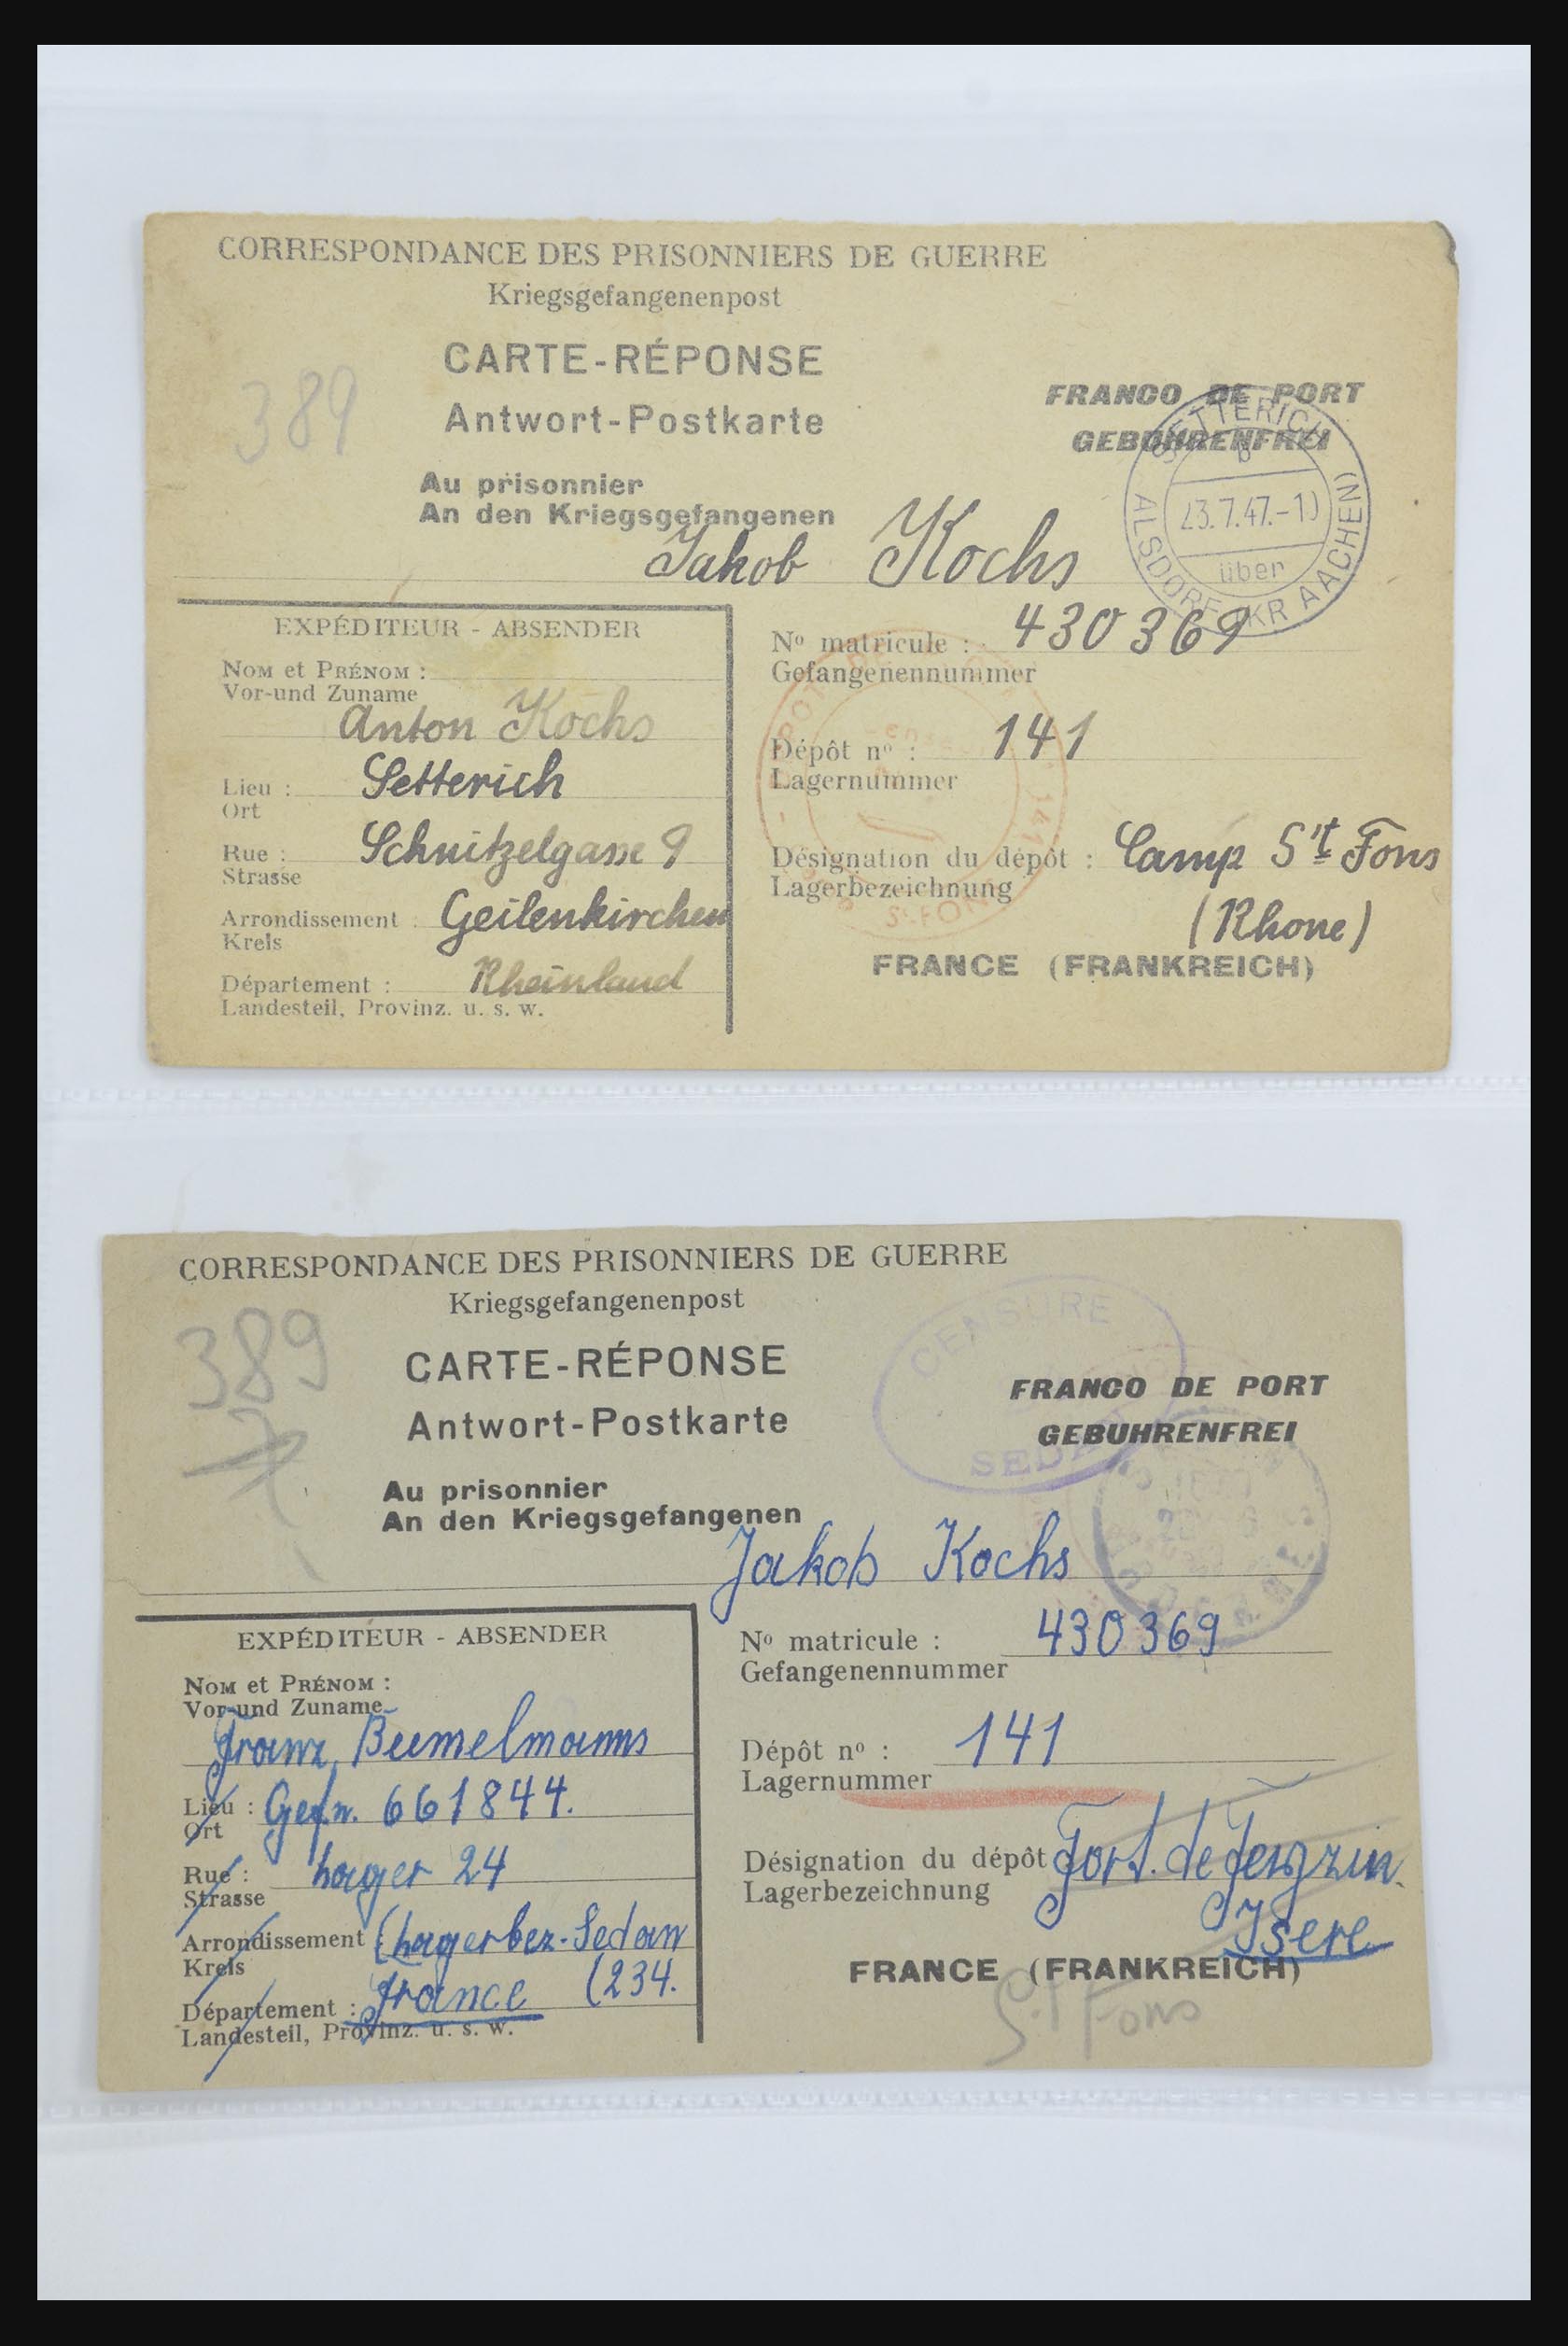 CORRESPONDANCE DES PRISONNIERS DE GUERRE
Kriegsgefangenenpost
389
CARTE-RÉPONSE
Antwort-Postkarte
FRANCO DE PORT
GEBUHRENFREI
SETTERICH
b
23.7.47.-1
über
ALSDORF (KR AACHEN)
Au prisonnier
An den Kriegsgefangenen
Jakob Kochs
EXPÉDITEUR - ABSENDER
Nom et Prénom :
Vor-und Zuname
Anton Kochs
Lieu : Setterich
Ort
Rue : Schnitzelgasse 9
Strasse
Arrondissement : Geilenkirchen
Kreis
Département : Rheinland
Landesteil, Provinz. u. s. w.
Nº matricule : 430369
Gefangenennummer
Dépôt nº : 141
Lagernummer
Désignation du dépôt : Camp St Fons
Lagerbezeichnung
(Rhone)
FRANCE (FRANKREICH)
DEPOT
141
St-FONS
CORRESPONDANCE DES PRISONNIERS DE GUERRE
Kriegsgefangenenpost
389
7
CARTE-RÉPONSE
Antwort-Postkarte
CENSURE
SEDAN
FRANCO DE PORT
GEBUHRENFREI
Au prisonnier
An den Kriegsgefangenen
Jakob Kochs
EXPÉDITEUR - ABSENDER
Nom et Prénom :
Vor-und Zuname
Franz Beemelmanns
Lieu : Gefn. 661844.
Ort
Rue : Lager 24
Strasse
Arrondissement (Lagerbez. Sedan
Kreis
Département : France (234.
Landesteil, Provinz. u. s. w.
Nº matricule : 430369
Gefangenennummer
Dépôt nº : 141
Lagernummer
Désignation du dépôt Fort. de
Lagerbezeichnung
Isere
FRANCE (FRANKREICH)
St Fons